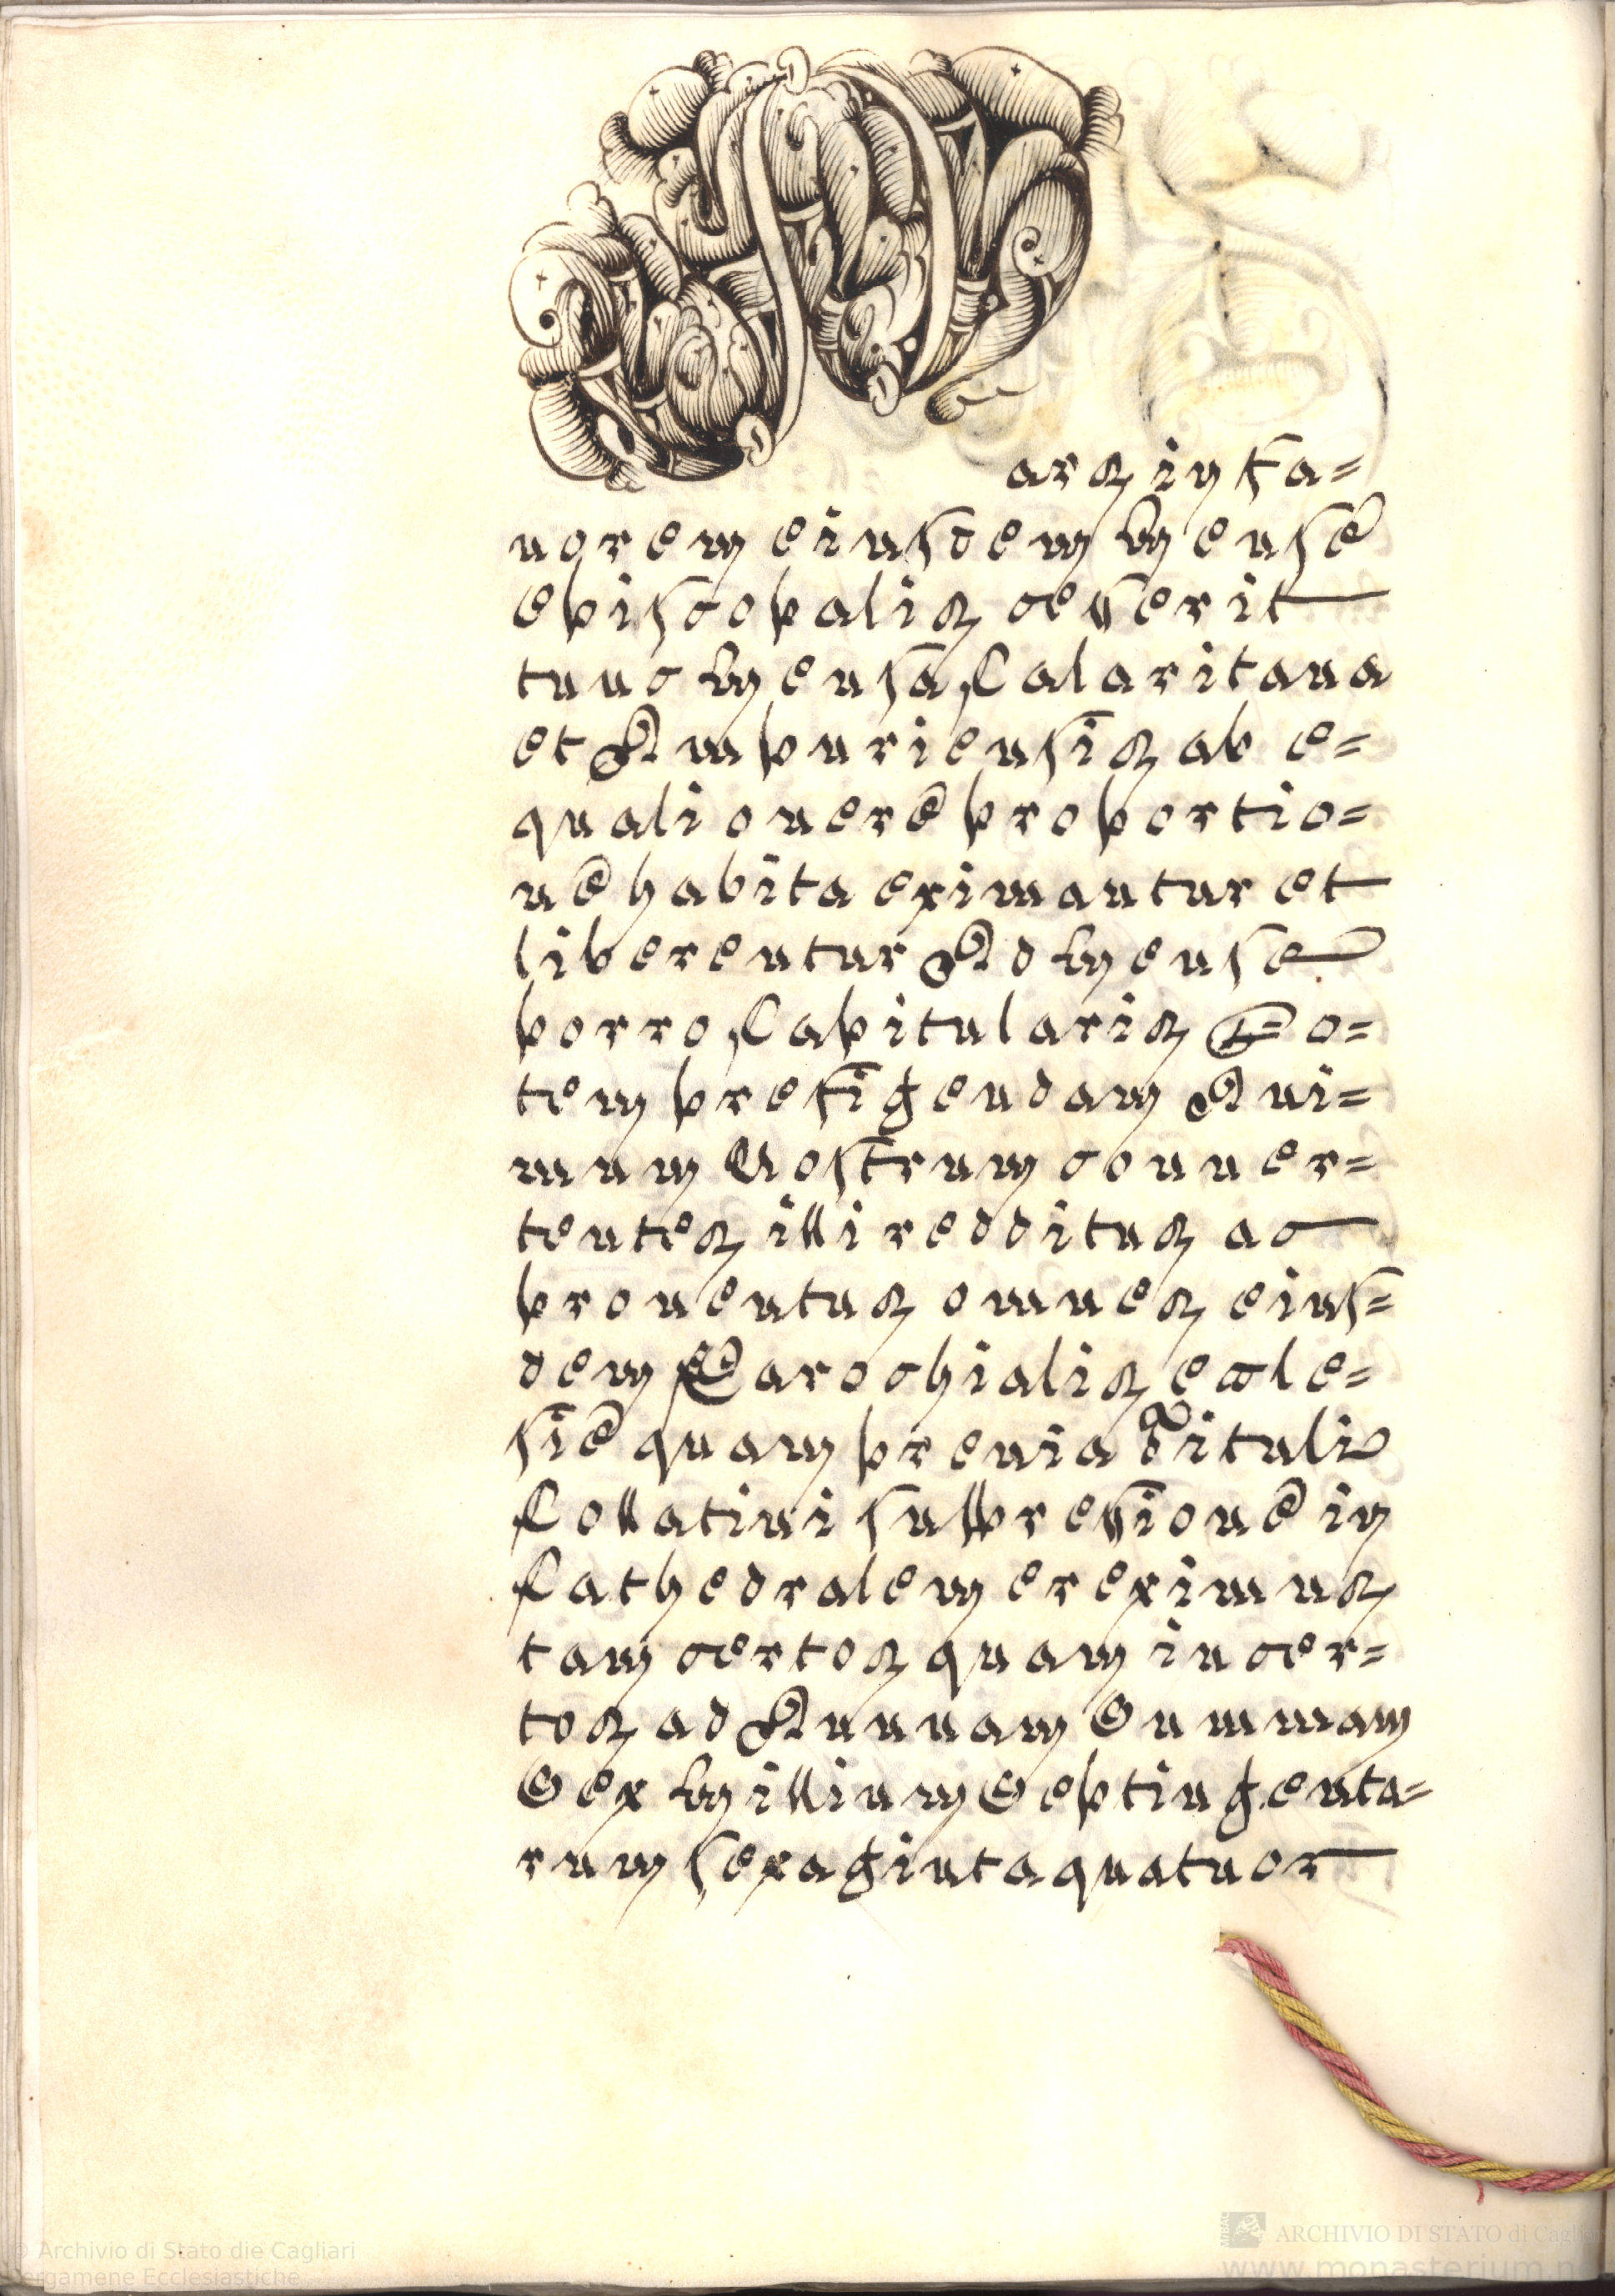 Mars in fa=
uorem eiusdem Mense
episcopalis cesserit
tunc Mensa Calaritana
et Ampuriensis ab e=
quali onere proportio=
ne habita eximantur et
liberentur Ad Mense
porro Capitularis Do=
tem prefigendam Ani=
mum Nostrum conuer=
tentes illi redditus ac
prouentus omnes eius=
dem Parochialis eccle=
sie quam preuia Tituli
Collatiui suppressione in
Cathedralem ereximus
tam certos quam incer=
tos ad Annuam Summam
Sex Millium Septingenta=
rum sexaginta quatuor
© Archivio di Stato die Cagliari
Pergamene Ecclesiastiche
ARCHIVIO DI STATO di Cagli
www.monasterium.n